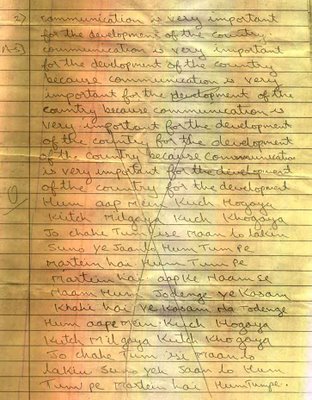 2) communication is very important
for the development of the country.
A-5) communication is very important
for the development of the country
because communication is very
important for the development of the
country because communication is
very important for the development
of the country for the development
of the country because communication
is very important for the development
of the country for the development
Hum aap Mein Kuch Hogaya
Kutch Milgaya Kuch Khogaya
Jo chahe Tum ise Maan to lakin
Suno ye Jaan lo Hum Tum Pe
Martein hai Hum Tum Pe
Martein hai appke Naam se
Naam Hum Jodenge ye Kasam
Khahi hai ye Kasam Na Todenge
Hum aape Mein Kuch Hogaya
Kutch Milgaya Kutch Khogaya
Jo chahe Tum ise Maan to
lakin Suno yeh Jaan lo Hum
Tum pe Martein hai Hum Tumpe.